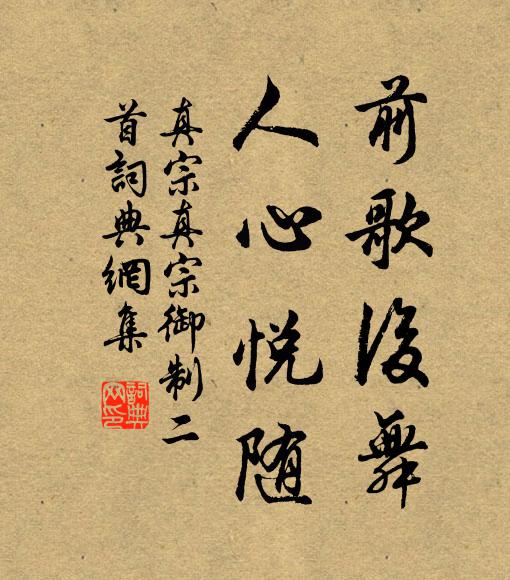 前歌後舞
人心悦随
真宗真宗御制二
首詞典網集
詞典网印